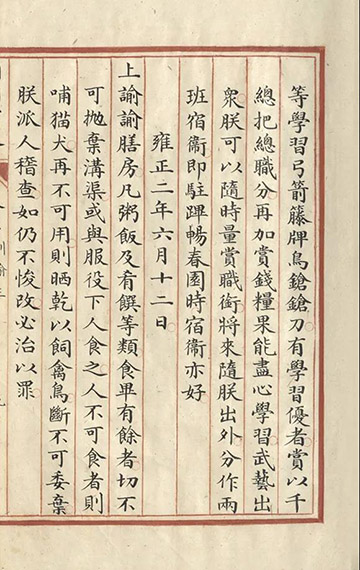 等學習弓箭籐牌鳥鎗鎗刀有學習優者賞以千
總把總職分再加賞錢糧果能盡心學習武藝出
衆朕可以隨時量賞職銜將來隨朕出外分作兩
班宿衞即駐蹕暢春園時宿衞亦好
雍正二年六月十二日
上諭諭膳房凡粥飯及肴饌等類食畢有餘者切不
可抛棄溝渠或與服役下人食之人不可食者則
哺猫犬再不可用則晒乾以飼禽鳥斷不可委棄
朕派人稽查如仍不悛改必治以罪